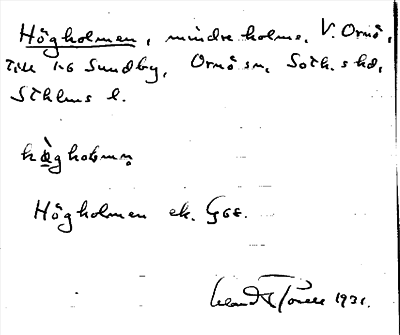 Högholmen, mindre holme, V. Ornö,
Till 1-6 Sundby, Ornö sn, Soth. shd,
Sthlms l.
hö̀gholmen
Högholmen ek. G68.
1931.